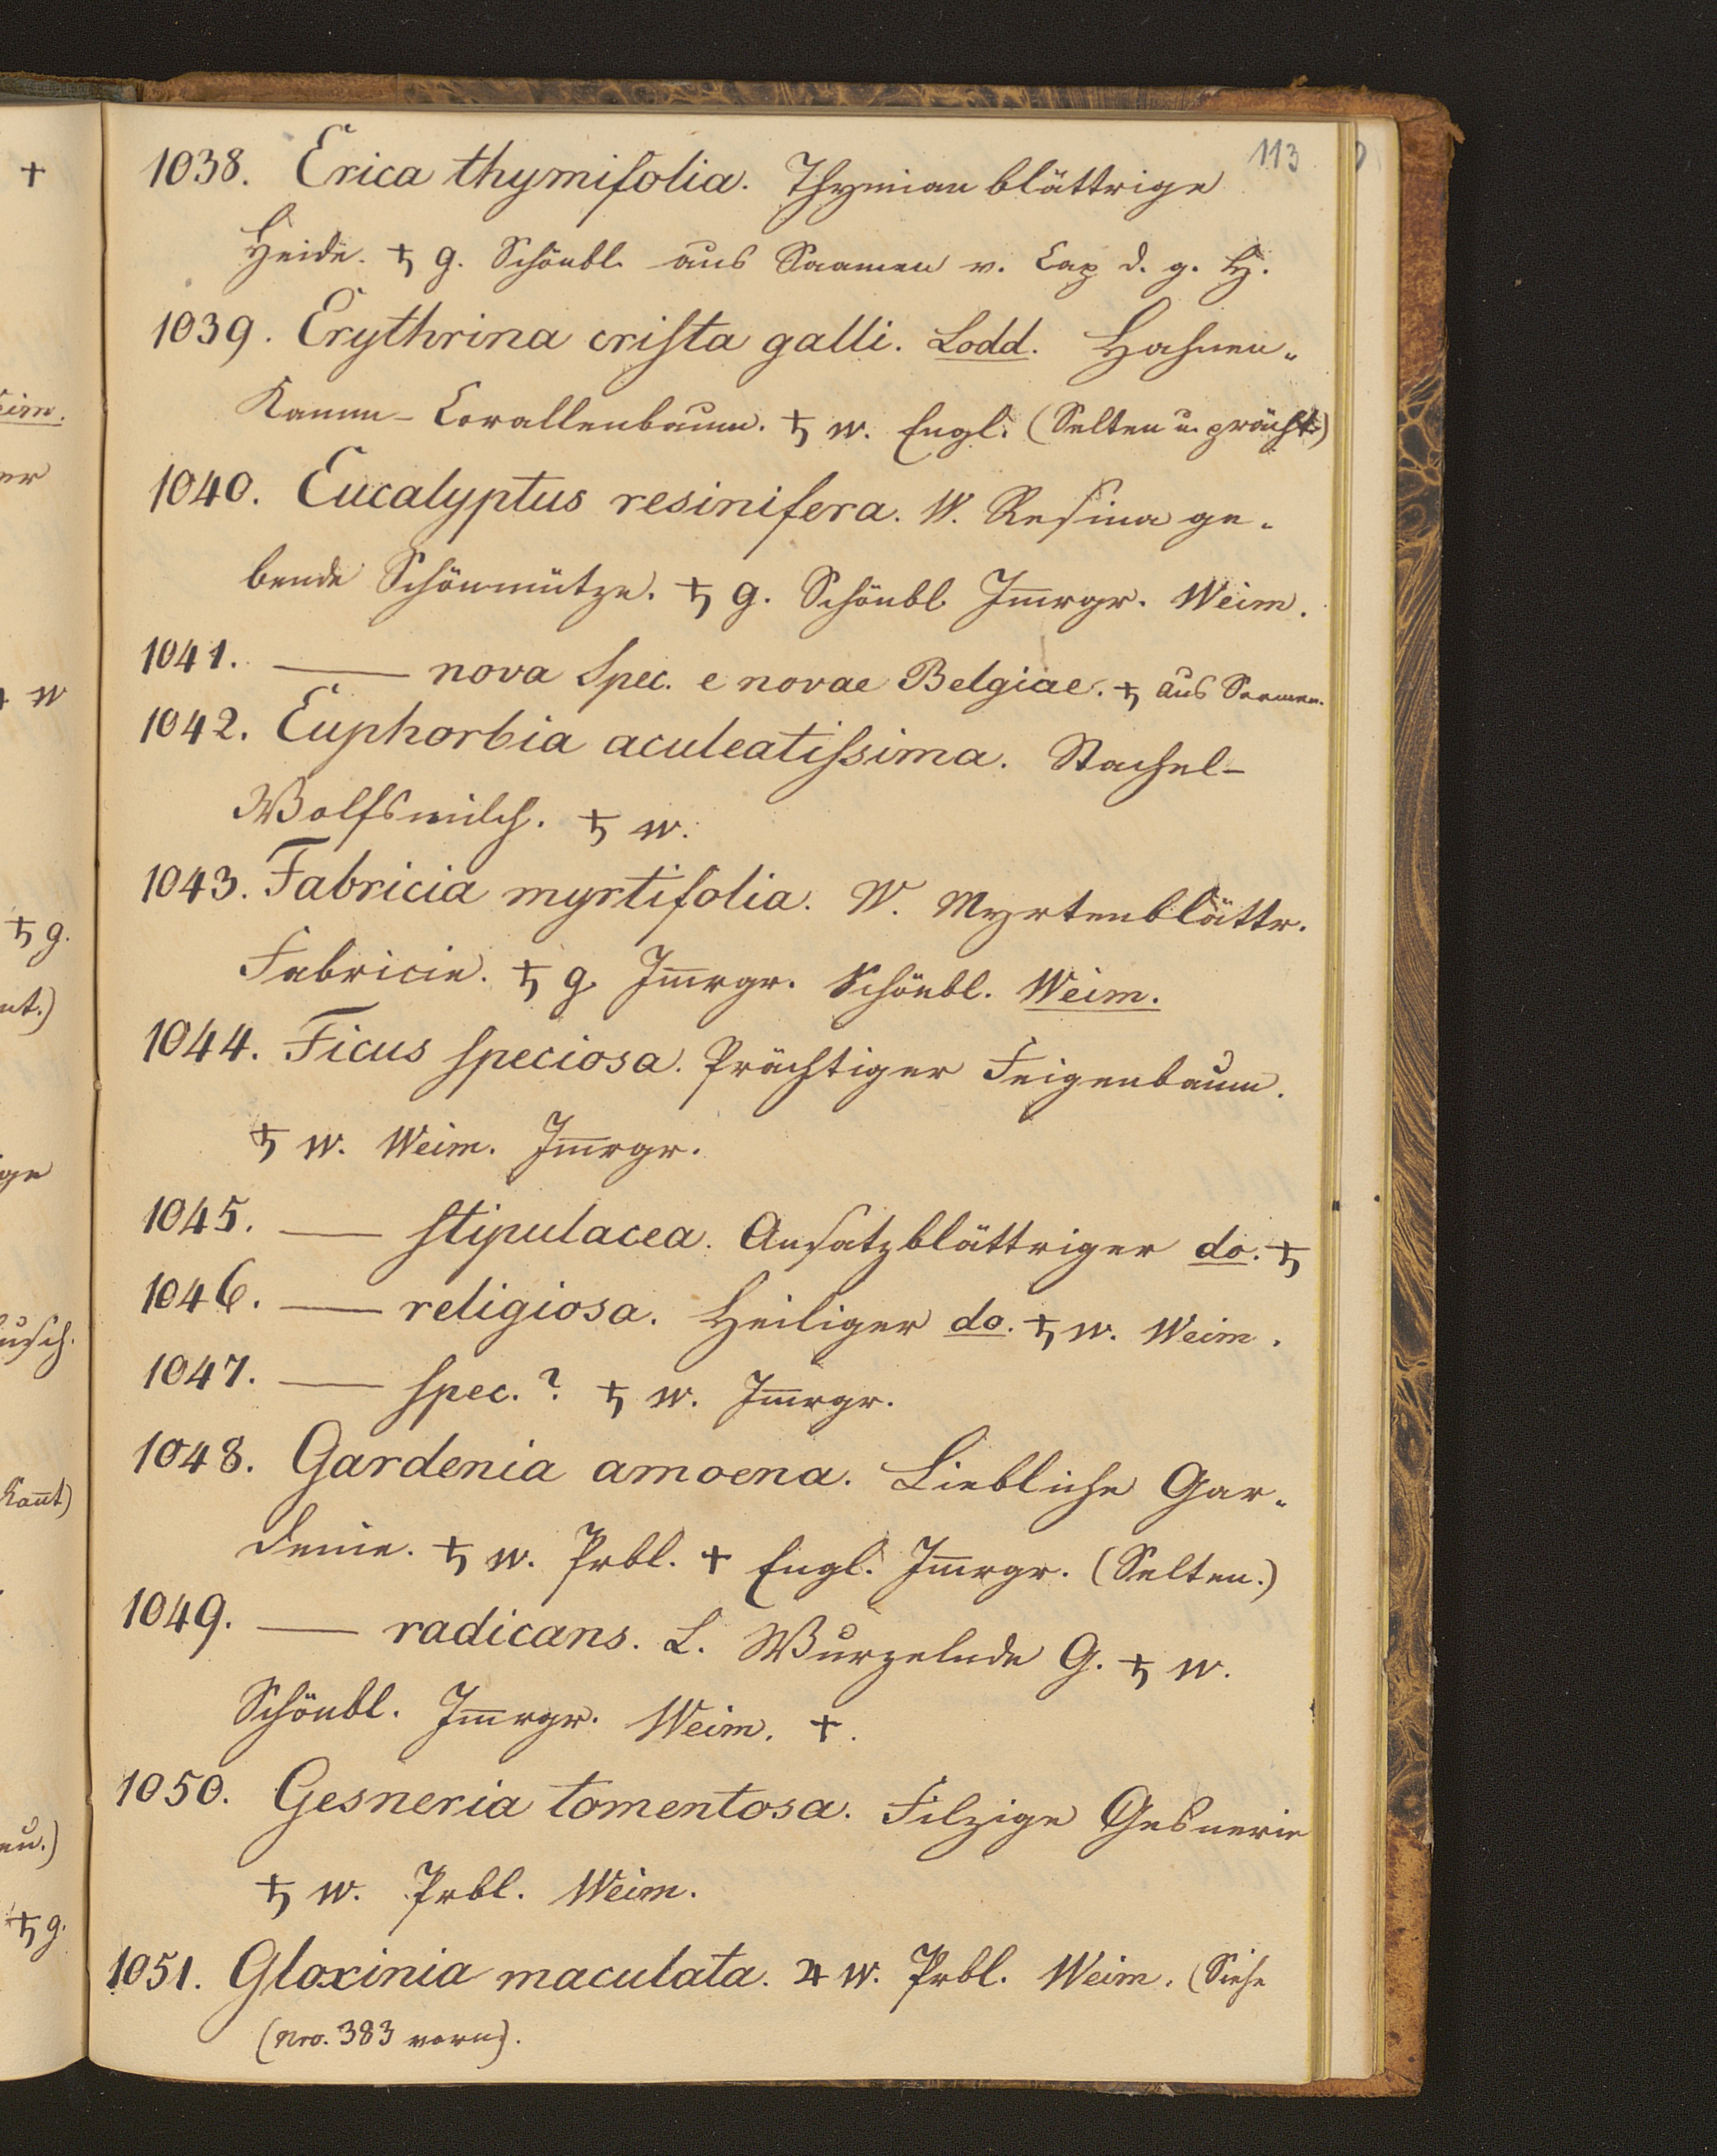 113
1038. Erica thymifolia. Thymian blättrige
Heide. ♄ g. Schönbl. aus Saamen v. Cap d. g. H.
1039. Erythrina crista galli. Lodd. Hahnen-
Kamm-Corallenbaum. ♄ w. Engl. (Selten u. prächt.)
1040. Eucalyptus resinifera. W. Resina ge-
bende Schönmütze. ♄ g. Schönbl. Im̄rgr. Weim.
1041. — nova Spec. e novae Belgiae. ♄ aus Saamen.
1042. Euphorbia aculeatissima. Stachel-
Wolfsmilch. ♄ w.
1043. Fabricia myrtifolia. W. Myrtenblättr.
Fabricie. ♄ g. Im̄rgr. Schönbl. Weim.
1044. Ficus speciosa. Prächtiger Feigenbaum.
♄ w. Weim. Im̄rgr.
1045. — stipulacea. Ansatzblättriger do. ♄
1046. — religiosa. Heiliger do. ♄ w. Weim.
1047. — spec.? ♄ w. Im̄rgr.
1048. Gardenia amoena. Liebliche Gar-
denie. ♄ w. Prbl. + Engl. Im̄rgr. (Selten.)
1049. — radicans. L. Wurzelnde G. ♄ w.
Schönbl. Im̄rgr. Weim. +.
1050. Gesneria tomentosa. Filzige Gesnerie
♄ w. Prbl. Weim.
1051. Gloxinia maculata. ♃ w. Prbl. Weim. (Siehe
(Nro. 383 vorn).